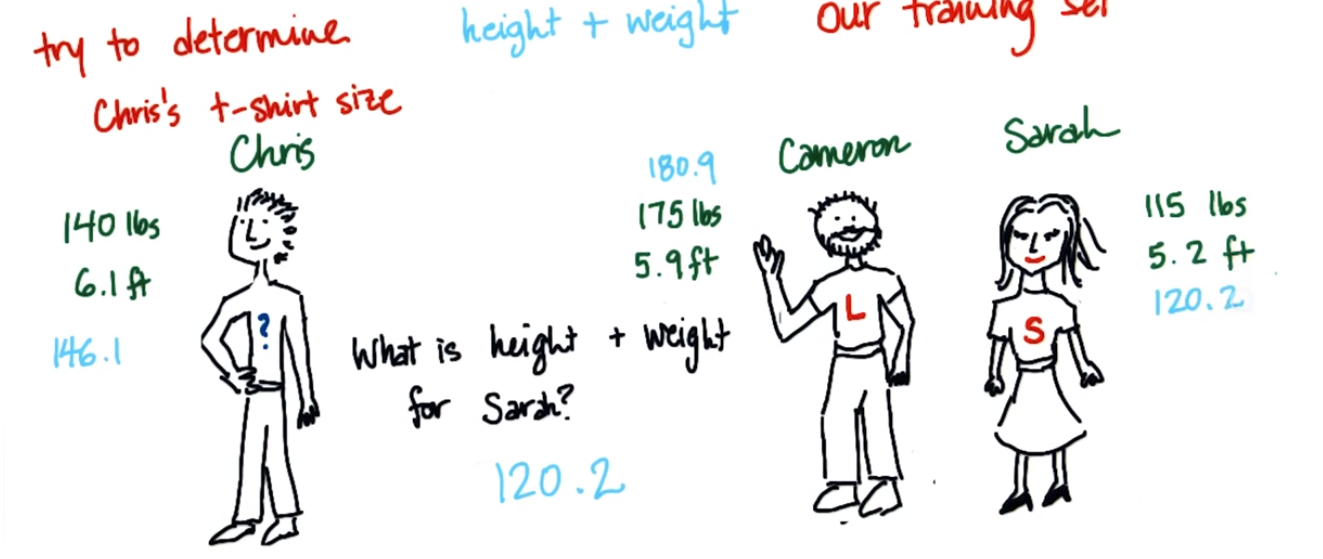 try to determine
Chris's t-shirt size
height + weight
our training set
Chris
140 lbs
6.1 ft
146.1
?
What is height + weight
for Sarah?
120.2
180.9
175 lbs
5.9 ft
Cameron
L
Sarah
S
115 lbs
5.2 ft
120.2